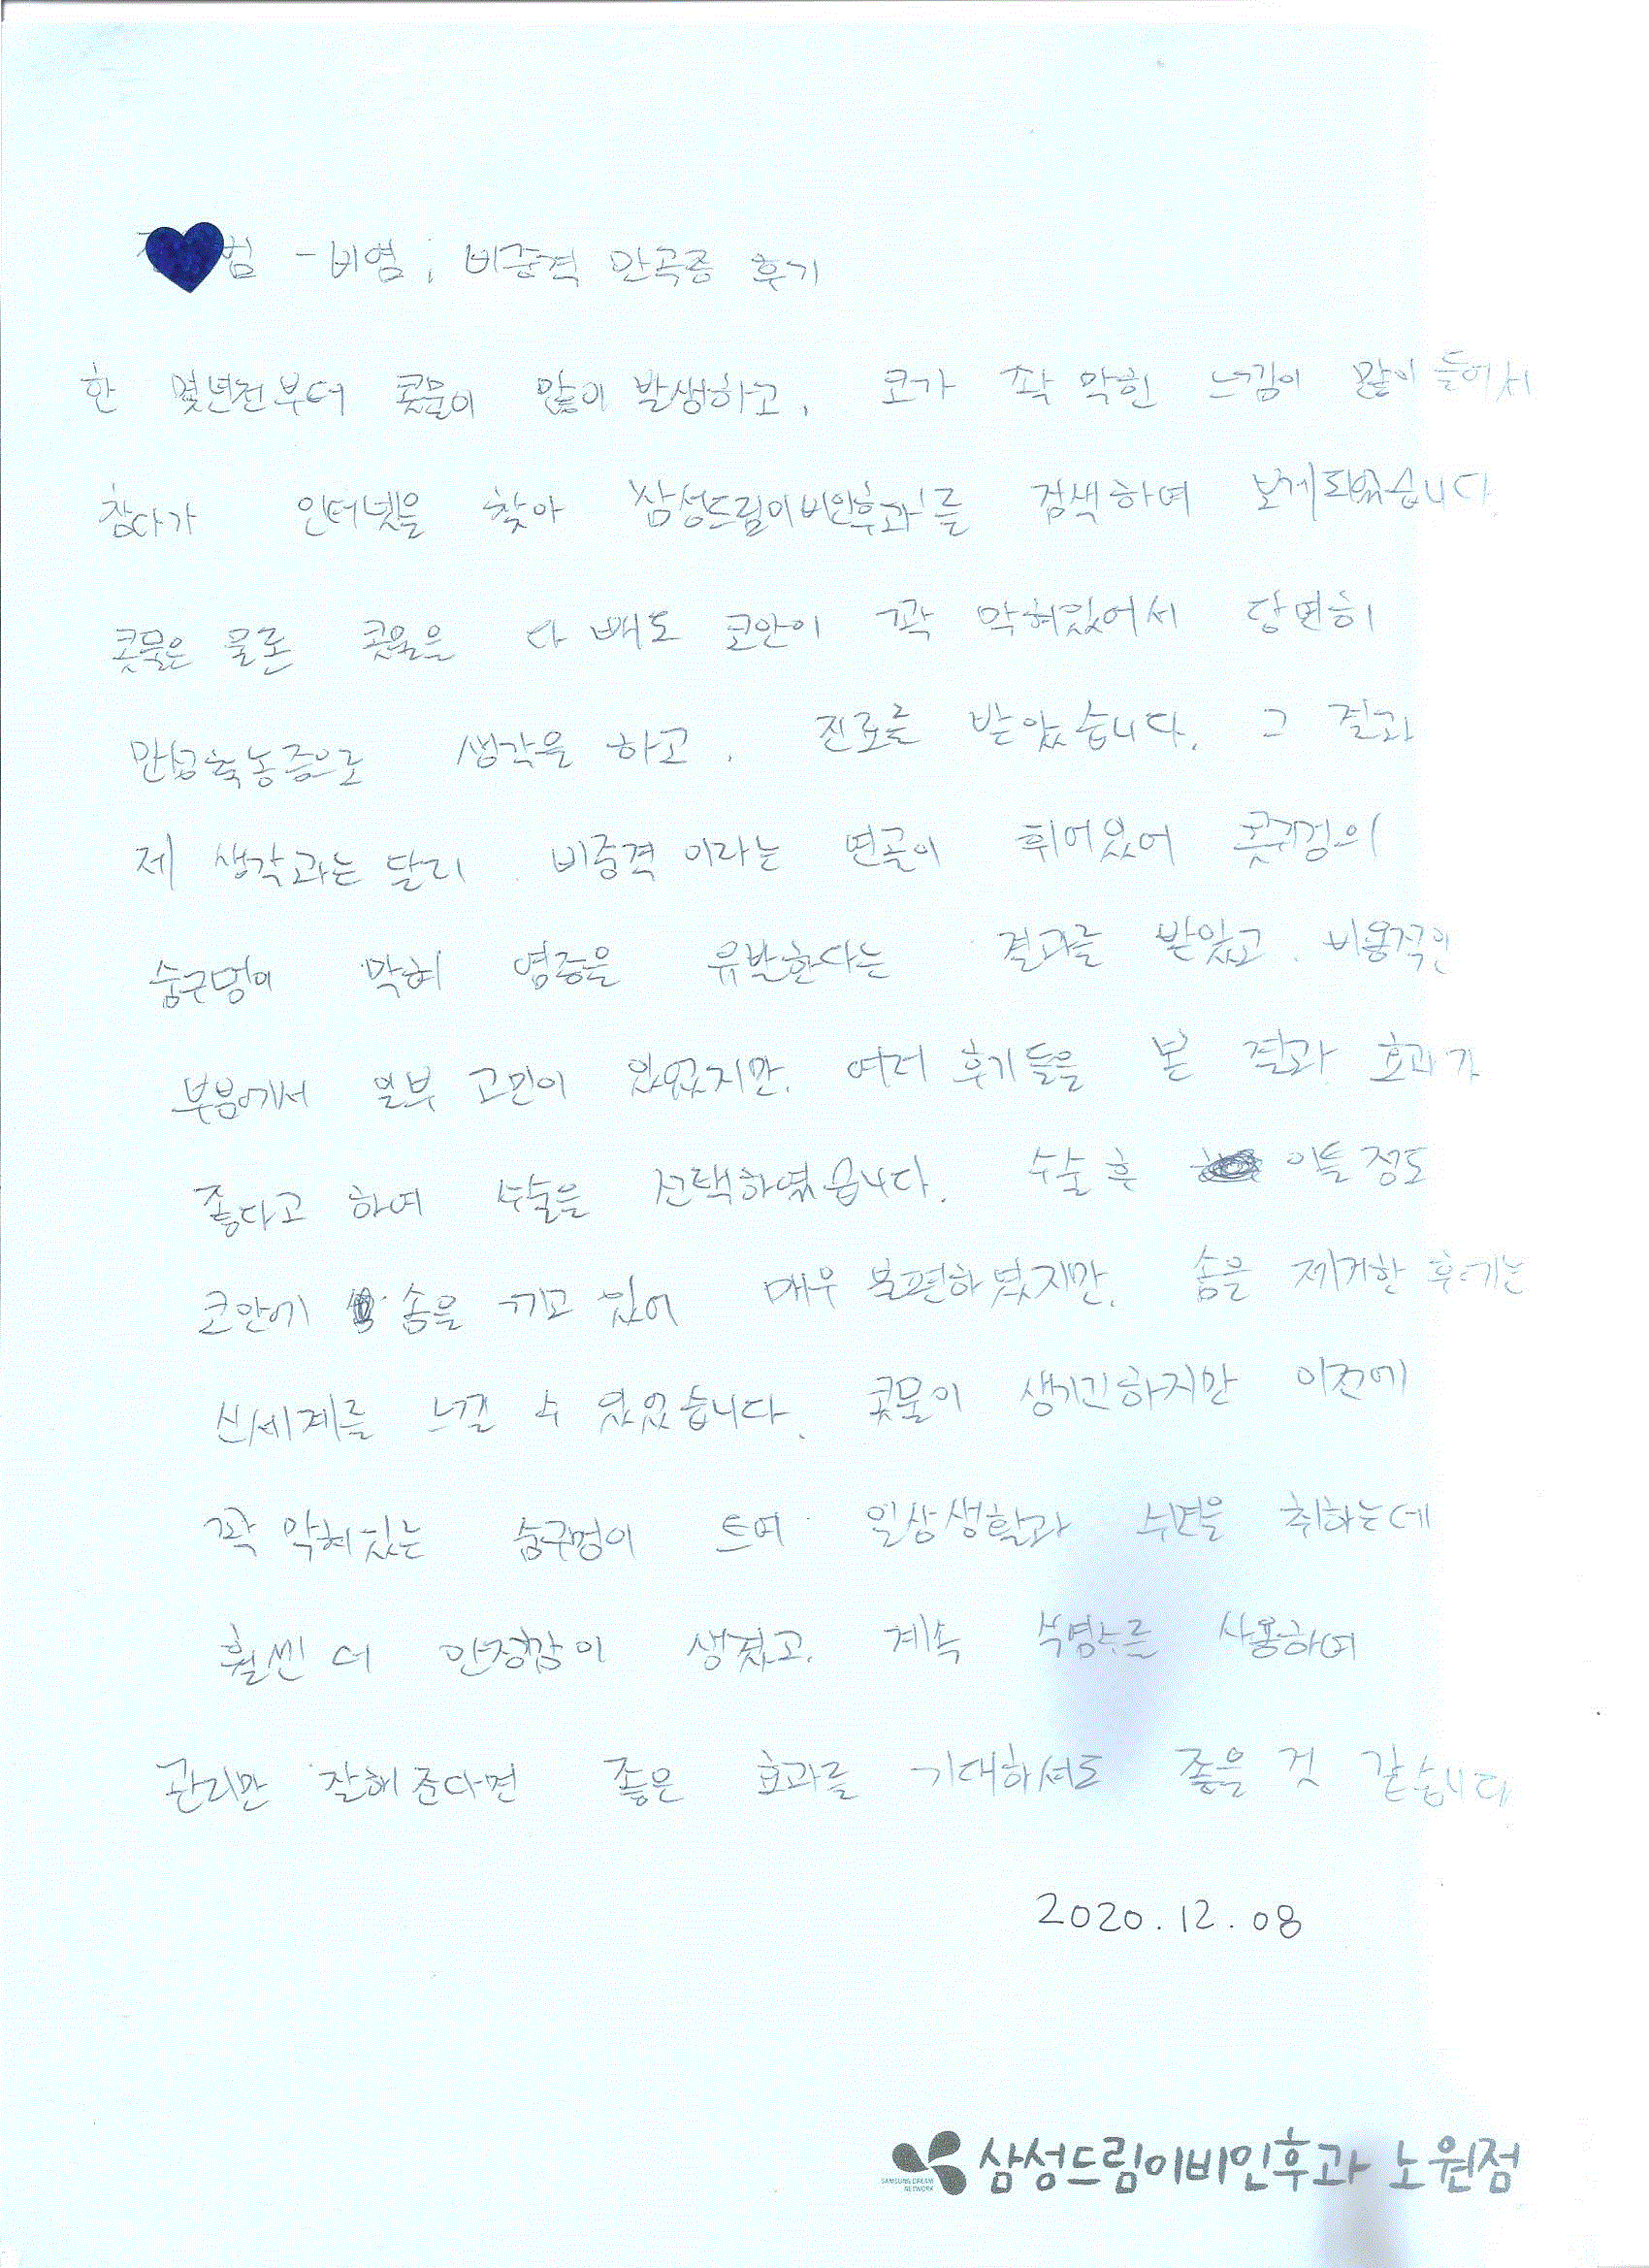 범 - 비염, 비중격 만곡증 후기
한 몇년전부터 콧물이 많이 발생하고, 코가 꽉 막힌 느낌이 많이 들어서
참다가 인터넷을 찾아 '삼성드림이비인후과'를 검색하여 보게되었습니다.
콧물은 물론 콧물을 다 빼도 코안이 꽉 막혀있어서 당연히
만성축농증으로 생각을 하고, 진료를 받았습니다. 그 결과
제 생각과는 달리, 비중격 이라는 연골이 휘어있어 콧구멍의
숨구멍이 막혀 염증을 유발한다는 결과를 받았고, 비용적인
부분에서 일부 고민이 있었지만, 여러 후기들을 본 결과 효과가
좋다고 하여 수술을 선택하였습니다. 수술 후 이틀 정도
코안에 솜을 끼고 있어 매우 불편하였지만, 솜을 제거한 후에는
신세계를 느낄 수 있었습니다. 콧물이 생기긴하지만 이전에
꽉 막혀있는 숨구멍이 트여 일상생활과 수면을 취하는데
훨씬 더 안정감이 생겼고, 계속 식염수를 사용하여
관리만 잘해준다면 좋은 효과를 기대하셔도 좋을 것 같습니다
2020.12.08
삼성드림이비인후과 노원점
SAMSUNG DREAM
NETWORK